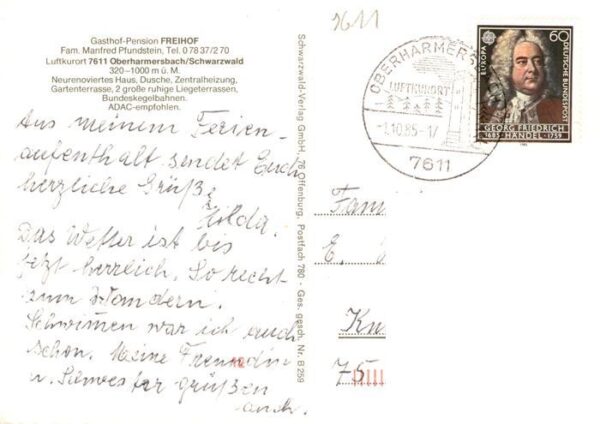 Gasthof-Pension FREIHOF
Fam. Manfred Pfundstein, Tel. 0 78 37/2 70
Luftkurort 7611 Oberharmersbach/Schwarzwald
320–1000 m ü. M.
Neurenoviertes Haus, Dusche, Zentralheizung,
Gartenterrasse, 2 große ruhige Liegeterrassen,
Bundeskegelbahnen.
ADAC-empfohlen.
Aus meinem Ferien-
aufenthalt sendet Euch
herzliche Grüße
Hilda.
Das Wetter ist bis
jetzt herrlich. So recht
zum Wandern.
Schwimmen war ich auch
schon. Meine Freundin
u. Schwester grüßen
auch.
Schwarzwald-Verlag GmbH, 76 Offenburg, Postfach 780 · Ges. gesch. Nr. B 259
7611
OBERHARMERS
LUFTKURORT
-1.10.85-17
7611
EUROPA
60
DEUTSCHE BUNDESPOST
GEORG FRIEDRICH
1685 · HÄNDEL · 1759
Fam
E.
Kn
75